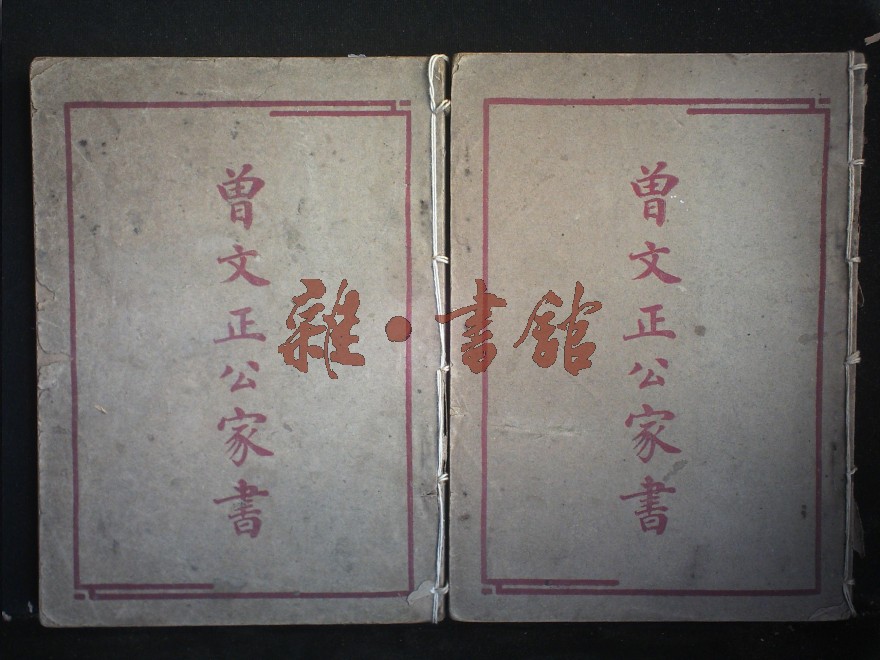 曾文正公家書
曾文正公家書
雜·書館